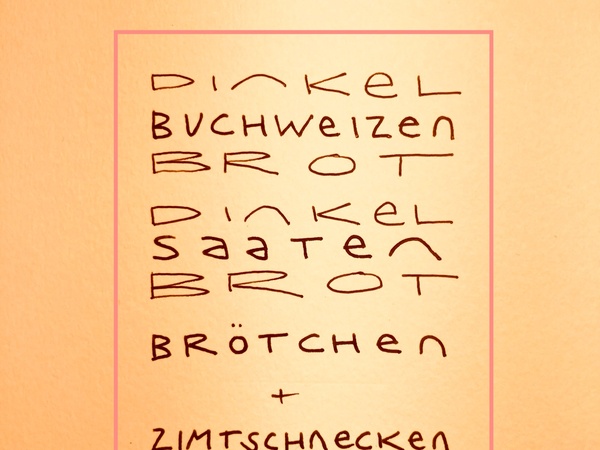 DINKEL
BUCHWEIZEN
BROT
DINKEL
SAATEN
BROT
BRÖTCHEN
+
ZIMTSCHNECKEN